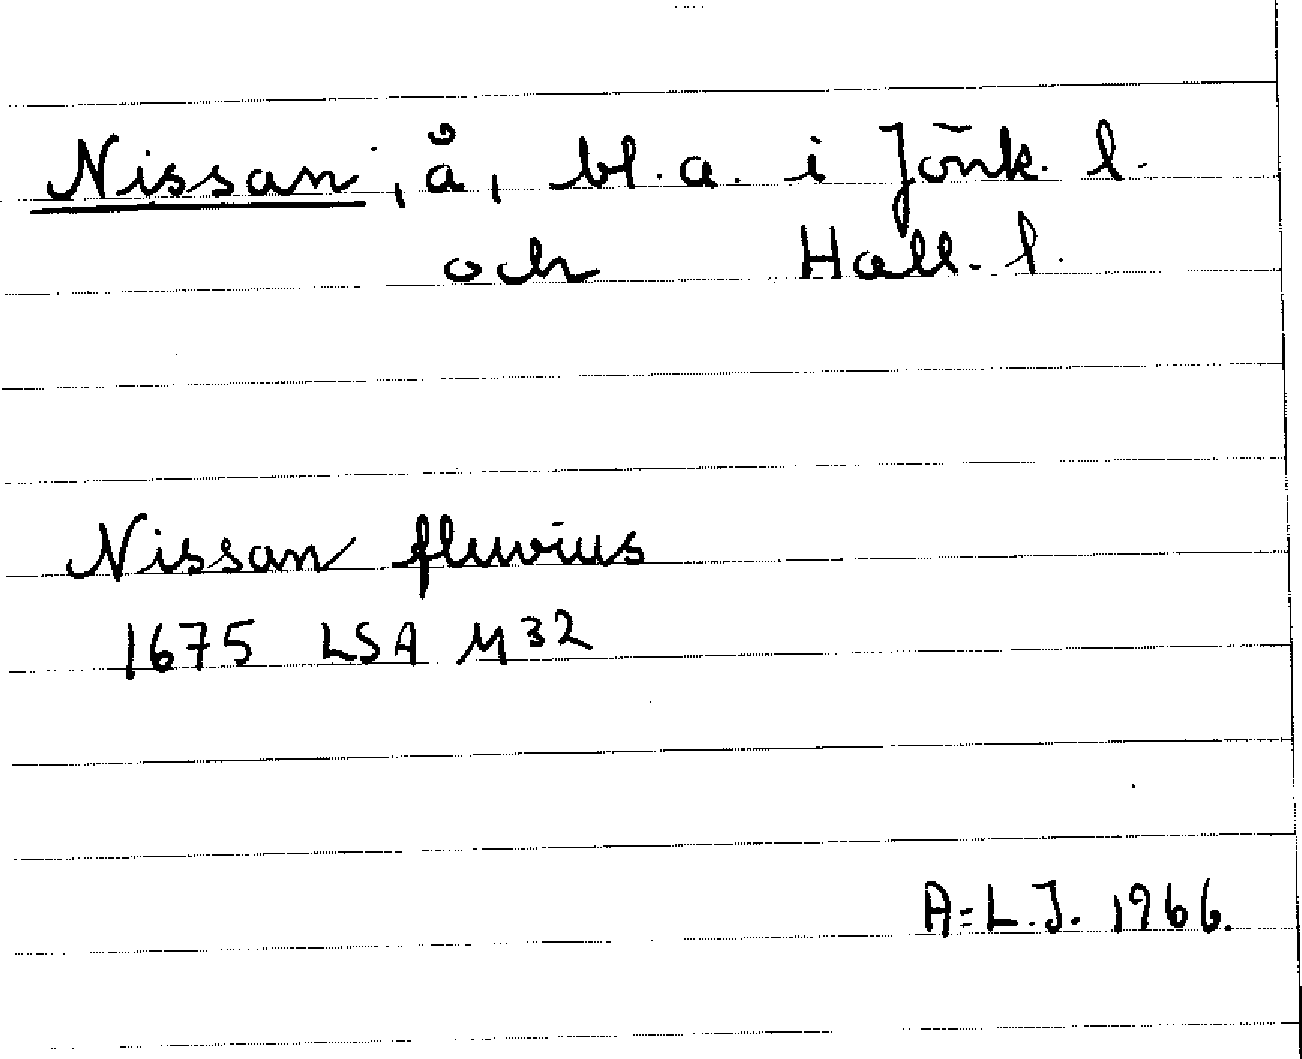 Nissan, å, bl.a. i Jönk. l.
och Hall. l.
Nissan fluvius
1675 LSA M32
A=L.J. 1966.